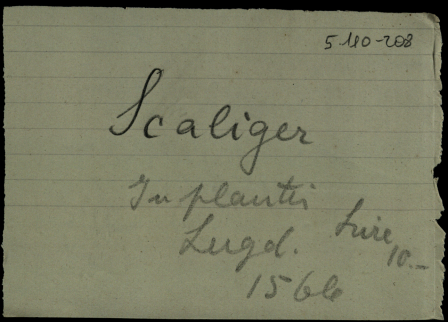 5 110-208
Scaliger
In plantis
Lugd. Lire
10.-
1566